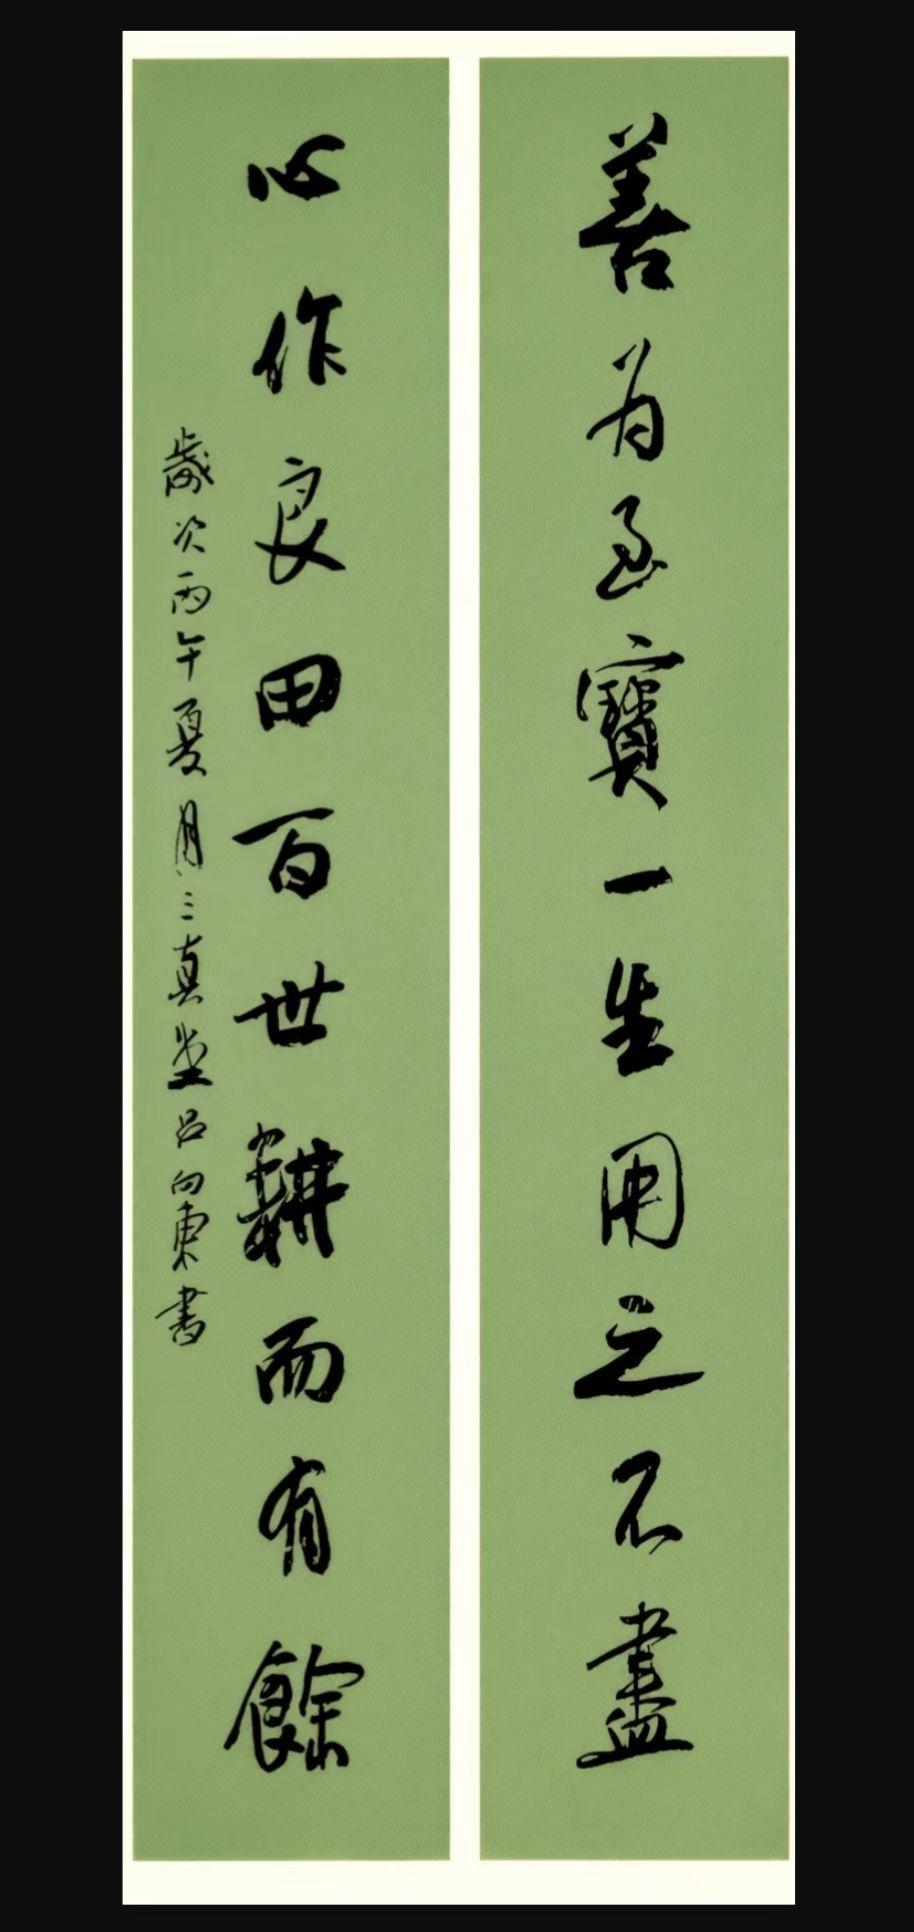 善为至寳一生用之不盡
心作良田百世耕而有餘
歲次丙午夏月三真堂吕向東書